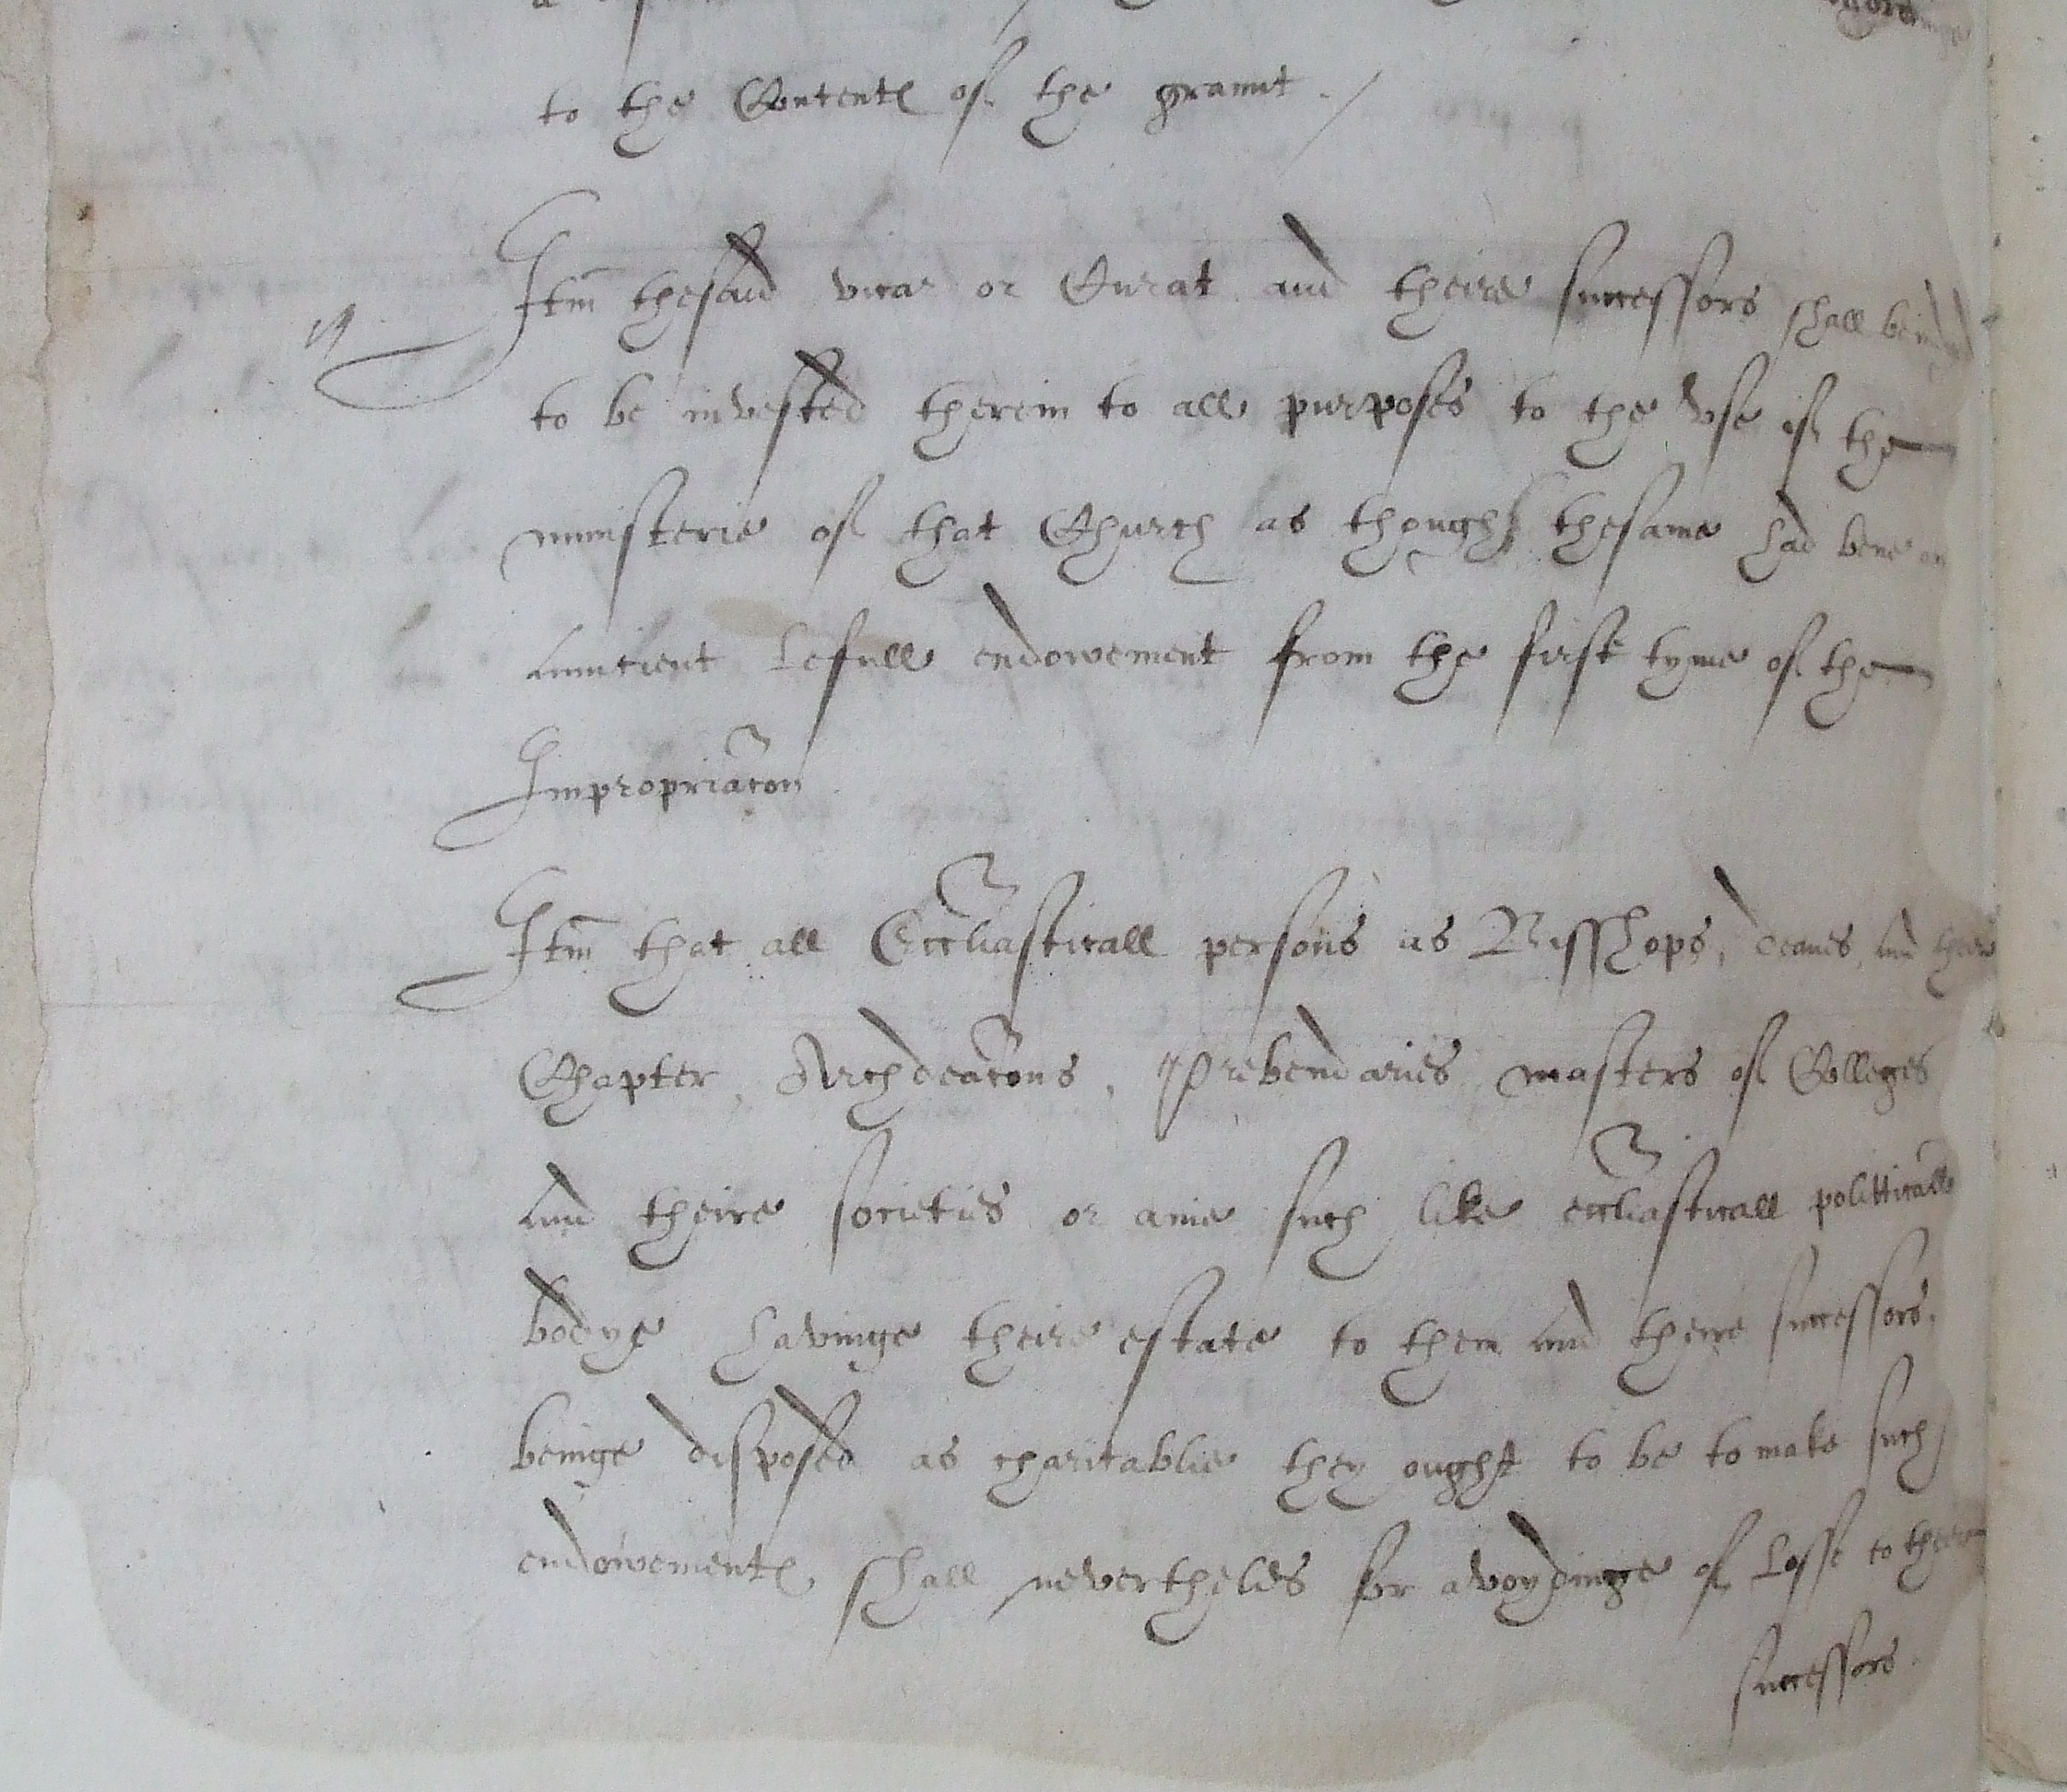 to the Contentes of the graunt ./
Itm thesaid vicar or Curat and theire successors shall be
to be invested therein to all purposes to the vse of the
ministerie of that Church as though thesame had bene an
Auncient lefull endowement from the first tyme of the
Impropriacon
Itm that all Eccliasticall persons as Bisshops, deanes, and theire
Chapter, Archdeacons, Prebendaries masters of Colleges
and theire societies or anie such like eccliasticall politticall
bodye havinge theire estate to them and theire successors,
beinge disposed as charitablie they ought to be to make such
endowementes, shall nevertheles for avoydinge of losse to theire
successors.